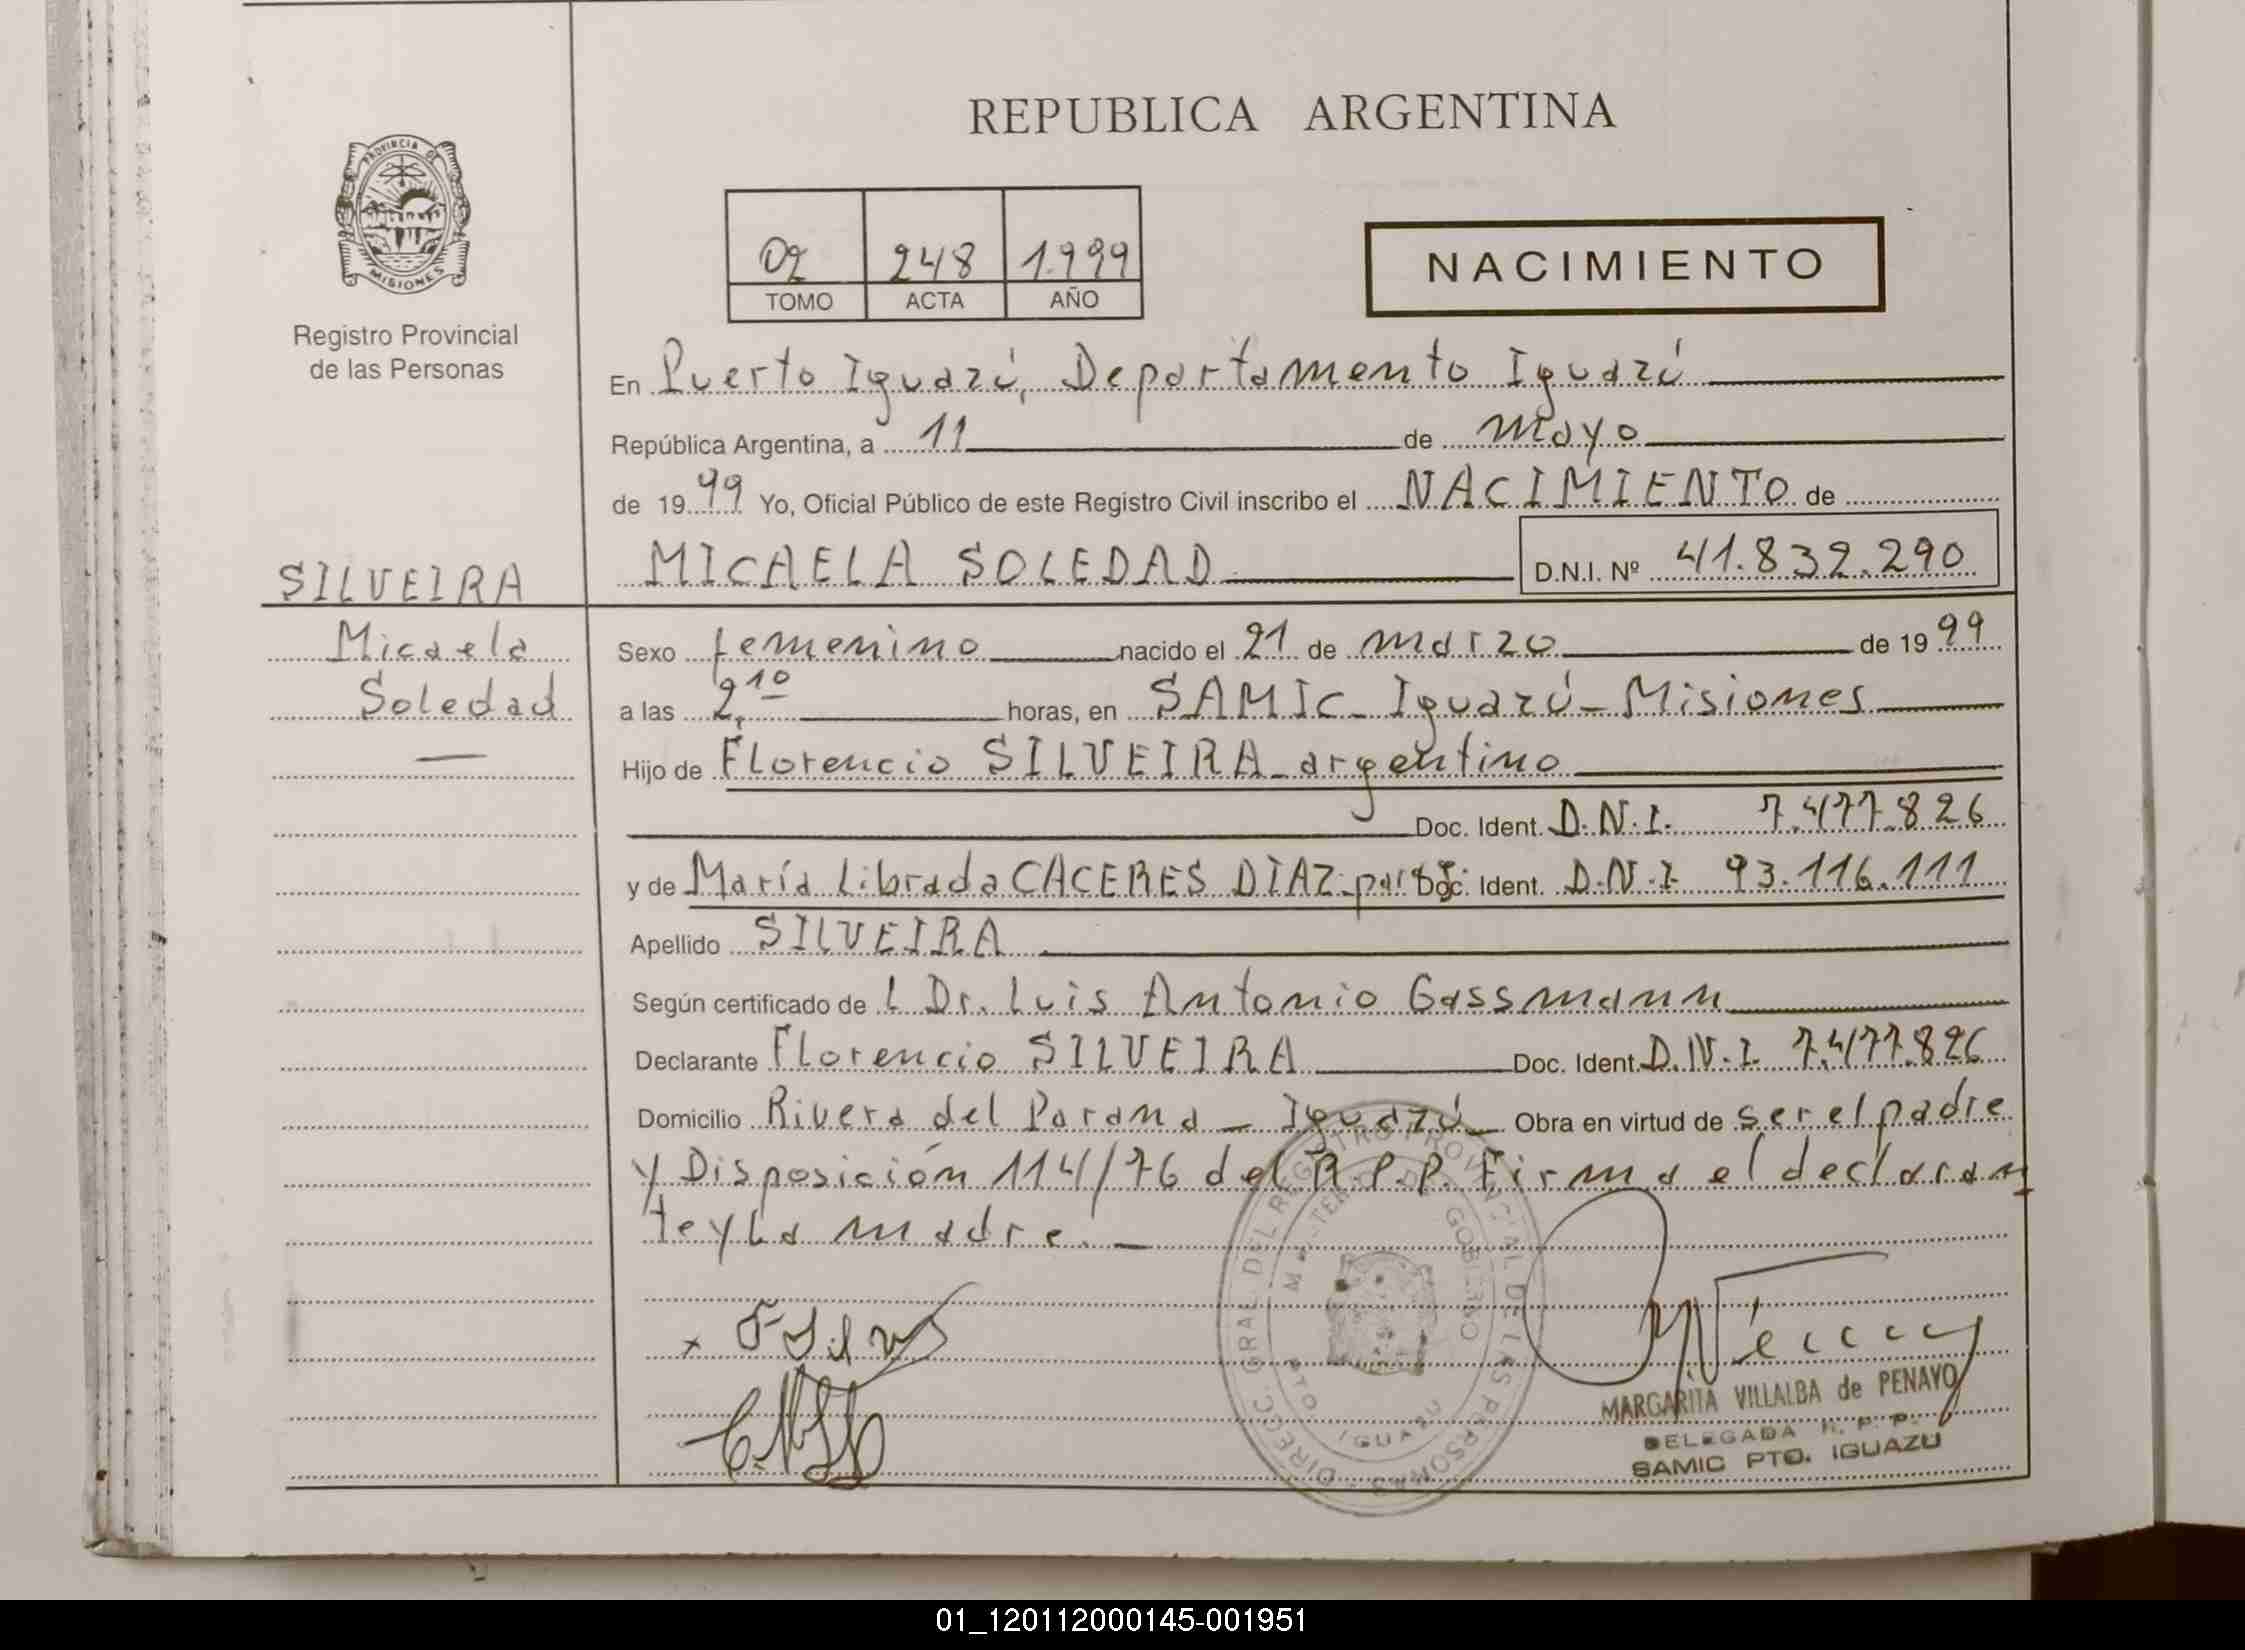 REPUBLICA ARGENTINA
PROVINCIA DE
MISIONES
Registro Provincial
de las Personas
02 248 1.999
TOMO ACTA AÑO
NACIMIENTO
En Puerto Iguazú, Departamento Iguazú
República Argentina, a 11 de mayo
de 19 99 Yo, Oficial Público de este Registro Civil inscribo el NACIMIENTO de
MICAELA SOLEDAD D.N.I. Nº 41.832.290
SILVEIRA
Micaela
Soledad
Sexo femenino nacido el 21 de marzo de 19 99
a las 2,10 horas, en SAMIC - Iguazú - Misiones
Hijo de Florencio SILVEIRA - argentino
Doc. Ident. D.N.I. 7.477.826
y de María Librada CACERES DIAZ Doc. Ident. D.N.I. 93.116.111
Apellido SILVEIRA
Según certificado de l Dr. Luis Antonio Gassmann
Declarante Florencio SILVEIRA Doc. Ident. D.N.I. 7.477.826
Domicilio Rivera del Parana - Iguazú Obra en virtud de ser el padre
y Disposición 114/76 del R.P.P. Firma el declaran
te y la madre. -
DIRECC. GRAL. DEL REGISTRO PROVINCIAL DE LAS PERSONAS
GOBIERNO
PTO. IGUAZU
MARGARITA VILLALBA de PENAYO
DELEGADA R. P. P.
SAMIC PTO. IGUAZU
01_120112000145-001951